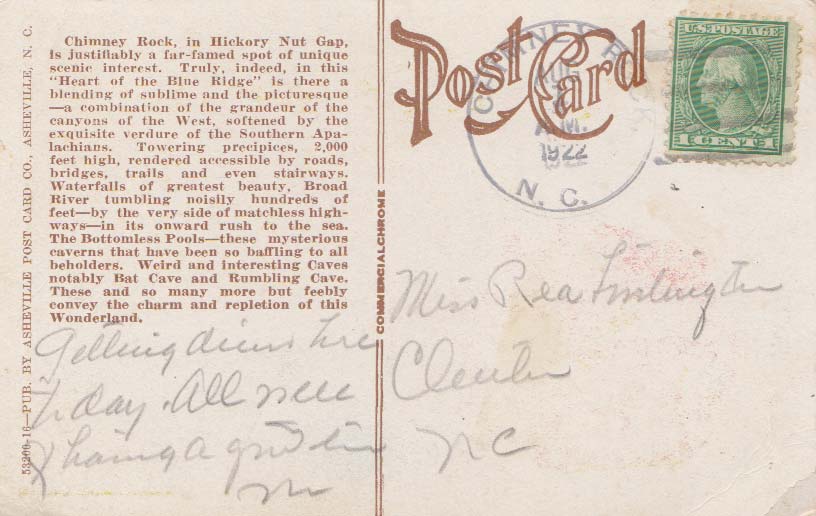 Chimney Rock, in Hickory Nut Gap,
is justifiably a far-famed spot of unique
scenic interest. Truly, indeed, in this
"Heart of the Blue Ridge" is there a
blending of sublime and the picturesque
—a combination of the grandeur of the
canyons of the West, softened by the
exquisite verdure of the Southern Apa-
lachians. Towering precipices, 2,000
feet high, rendered accessible by roads,
bridges, trails and even stairways.
Waterfalls of greatest beauty, Broad
River tumbling noisily hundreds of
feet—by the very side of matchless high-
ways—in its onward rush to the sea.
The Bottomless Pools—these mysterious
caverns that have been so baffling to all
beholders. Weird and interesting Caves
notably Bat Cave and Rumbling Cave.
These and so many more but feebly
convey the charm and repletion of this
Wonderland.
53200-16—PUB. BY ASHEVILLE POST CARD CO., ASHEVILLE, N. C.
COMMERCIALCHROME
Post Card
CHIMNEY ROCK
AUG
A.M.
1922
N. C.
U.S. POSTAGE
1 CENT 1
Getting dinner here
today. All well
& having a good time
Miss Rea
Clinton
NC